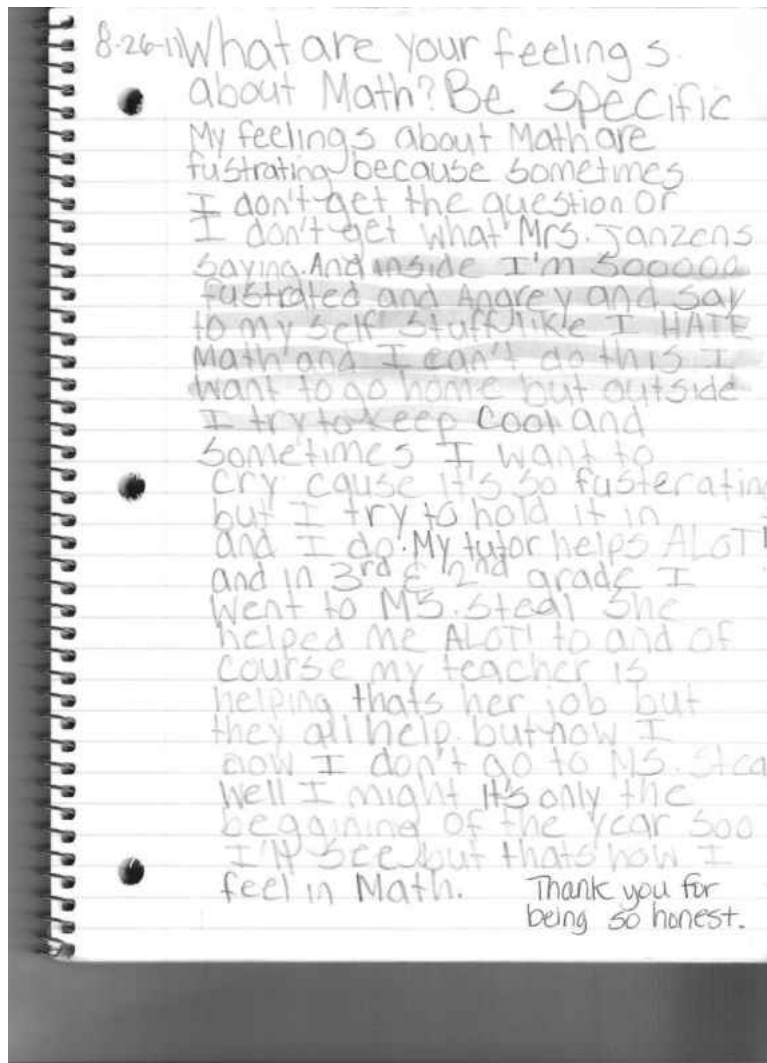 8-26-11 What are your feelings
about Math? Be specific
My feelings about Math are
fustrating because sometimes
I don't get the question or
I don't get what Mrs. Janzens
saying. And inside I'm sooooo
fustrated and Angrey and say
to my self stuff like I HATE
Math and I can't do this I
want to go home but outside
I try to keep cool and
sometimes I want to
cry cause it's so fusterating
but I try to hold it in
and I do. My tutor helps ALOT!
and in 3rd & 2nd grade I
went to MS. Steal she
helped me ALOT! to and of
course my teacher is
helping thats her job but
they all help. but now I
now I don't go to MS. Stea
well I might it's only the
beggining of the year soo
I'll see but thats how I
feel in Math.
Thank you for
being so honest.